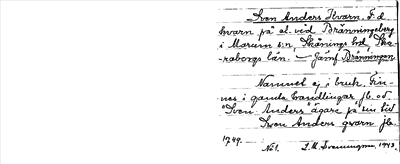 Sven Anders Kvarn. F. d.
kvarn på el. vid Bränningeberg
i Marum s:n, Skånings hd, Ska-
raborgs län. — Jämf Bränningen.
Namnet ej i bruk. Fin-
nes i gamla handlingar fr. o.
"Sven Anders" ägare på sin tid
Sven Anders qvarn jb.
1749.
No 1. L. M. Svenungsson, 1943.